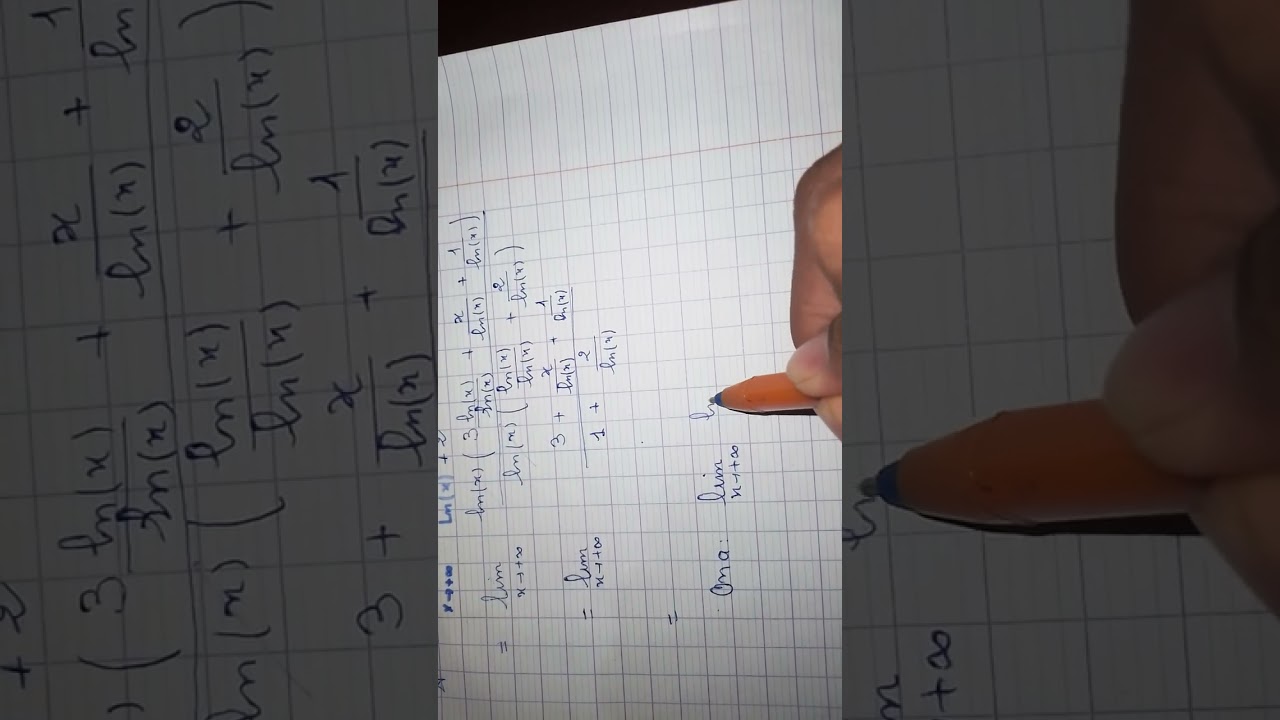 x→+∞ Ln(x) + 2
= lim x→+∞ ln(x) ( 3 ln(x)/ln(x) + x/ln(x) + 1/ln(x) ) / ln(x) ( ln(x)/ln(x) + 2/ln(x) )
= lim x→+∞ 3 + x/ln(x) + 1/ln(x) / 1 + 2/ln(x)
=
On a : lim x→+∞ ln